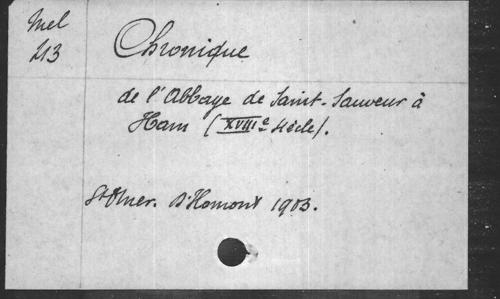 Mel
213
Chronique
de l'Abbaye de Saint-Sauveur à
Ham (XVIIIe siècle).
St Omer. D'Homont 1903.